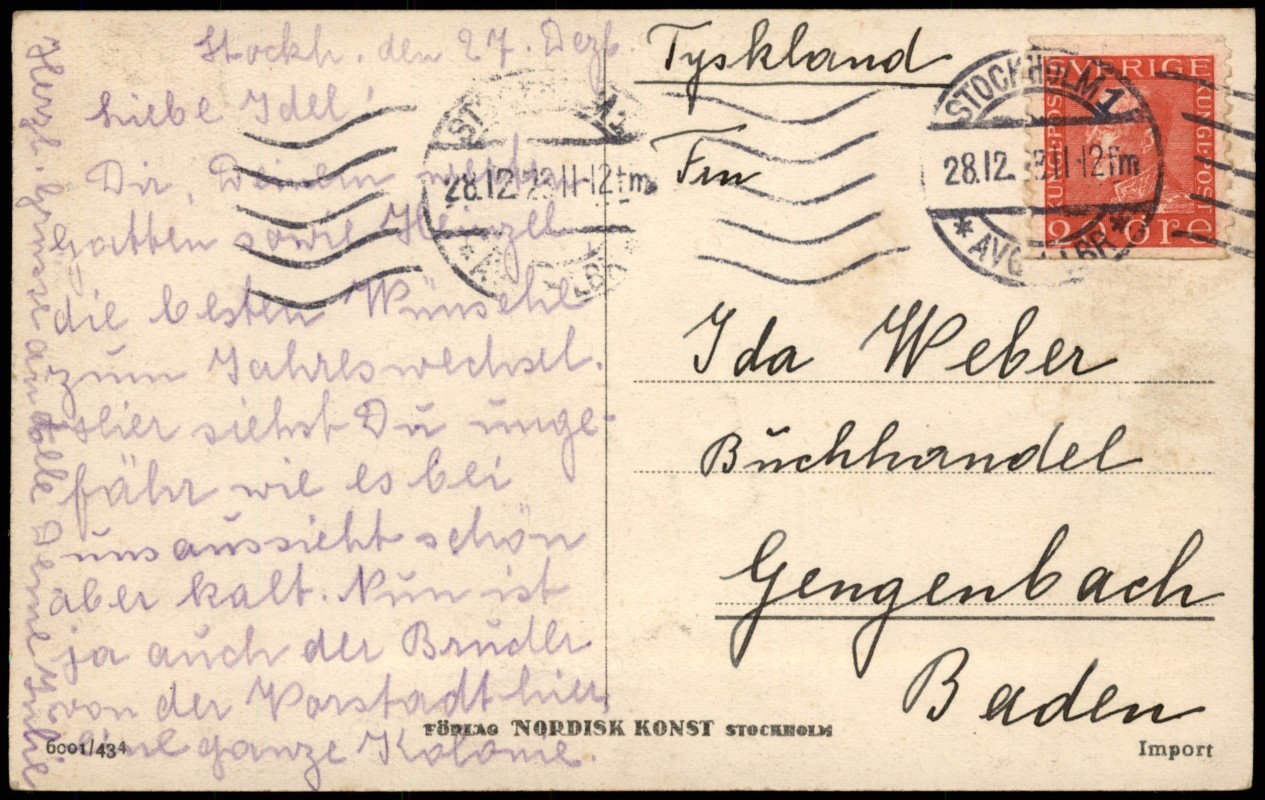 Stockh. den 27. Dezb.
Liebe Idel!
Dir, Deinem
Gatten sowie Heinzel
die besten Wünsche
zum Jahreswechsel.
Hier siehst Du unge-
fähr wie es bei
uns aussieht schön
aber kalt. Nun ist
ja auch der Bruder
von der Vorstadt hier,
eine ganze Kolonie.
Herzl. Grüsse an alle Deine
Tyskland
Frau
Ida Weber
Buchhandel
Gengenbach
Baden
STOCKHOLM 1
28.12. 11-12 fm
* AVG. LBR *
28.12. 11-12 fm
SVERIGE
KUNGL. POST
20 ÖRE
FÖRLAG NORDISK KONST STOCKHOLM
6001/434
Import